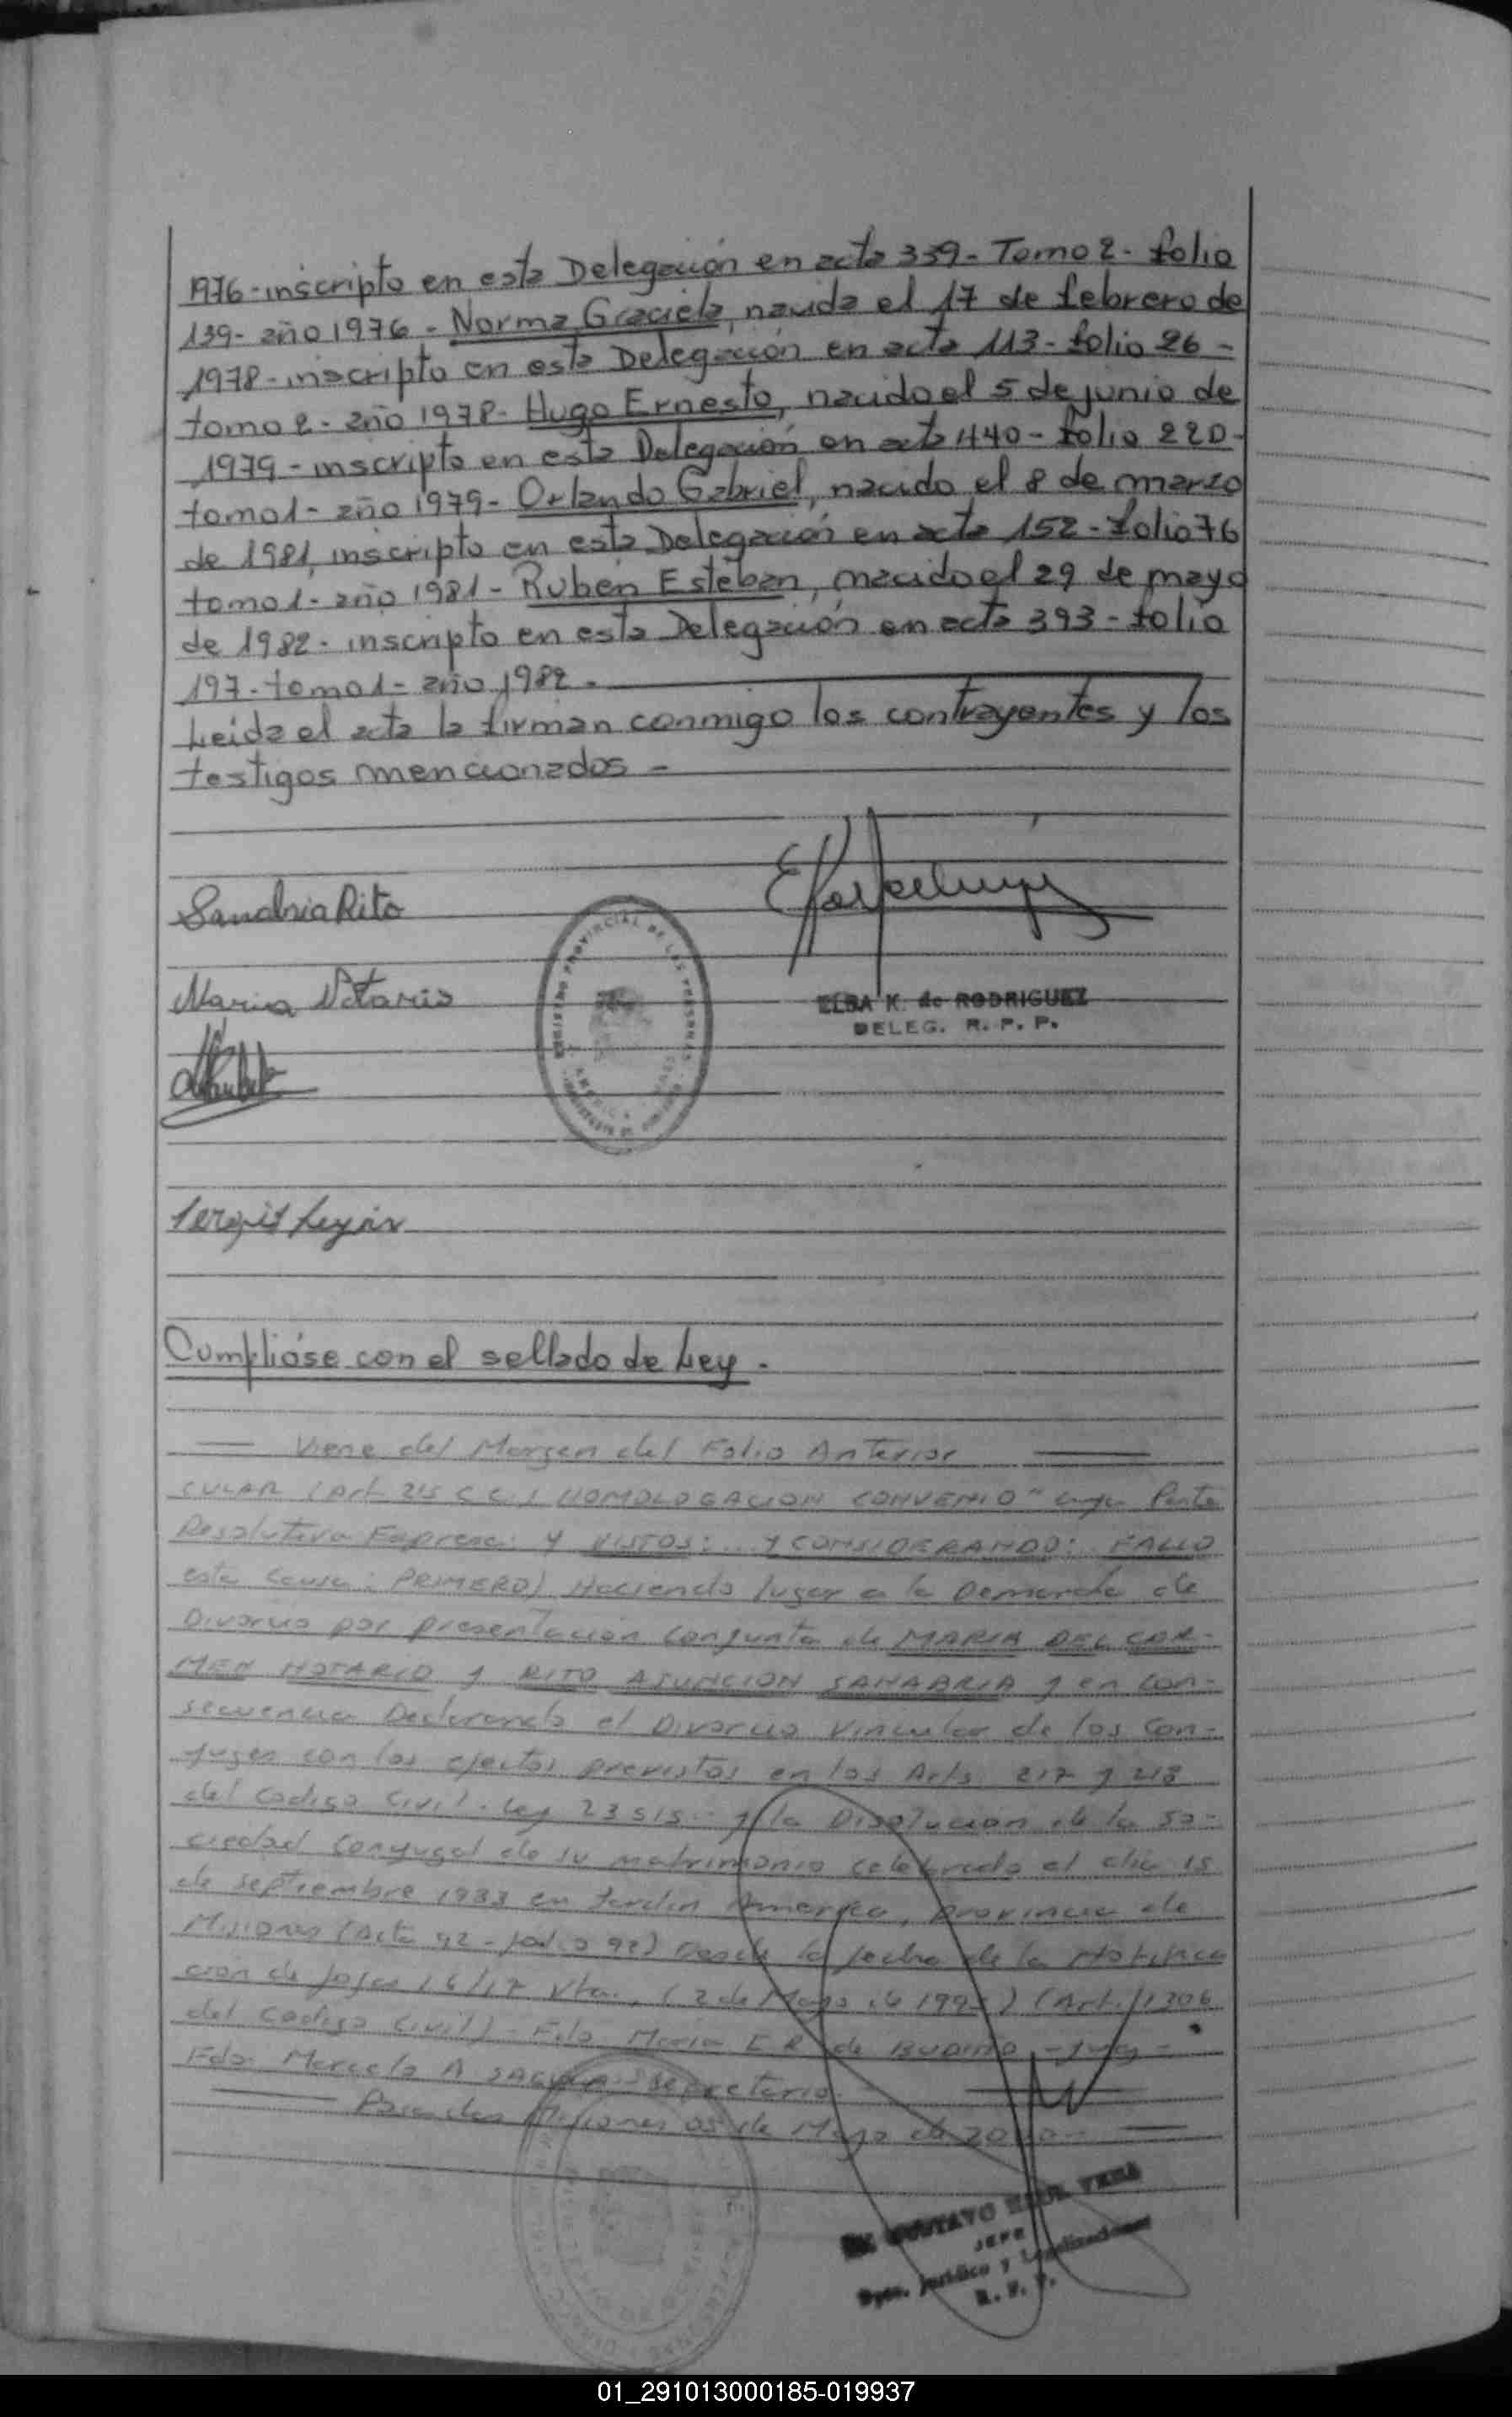 1976-inscripto en esta Delegación en acta 339- Tomo 2- folio
139- año 1976 - Norma Graciela, nacida el 17 de febrero de
1978- inscripto en esta Delegación en acta 113- folio 26 -
tomo 2- año 1978- Hugo Ernesto, nacido el 5 de junio de
1979 - inscripto en esta Delegación en acta 440- folio 220-
tomo 1- año 1979- Orlando Gabriel, nacido el 8 de marzo
de 1981, inscripto en esta Delegación en acta 152- folio 76
tomo 1- año 1981- Rubén Estéban, nacido el 29 de mayo
de 1982- inscripto en esta Delegación en acta 393- folio
197- tomo 1- año 1982 -
Leida el acta la firman conmigo los contrayentes y los
testigos mencionados -
Sanabria Rito
Maria Notario
ELBA K. de RODRIGUEZ
DELEG. R. P. P.
REGISTRO PROVINCIAL DE LAS PERSONAS
Cumplióse con el sellado de Ley -
Viene del Margen del Folio Anterior
CULAR (Art 215 C.C.) HOMOLOGACION CONVENIO" cuya Parte
Resolutiva Expresa: Y VISTOS: ... Y CONSIDERANDO: FALLO
esta causa: PRIMERO) Haciendo lugar a la Demanda de
Divorcio por presentacion conjunta de MARIA DEL CAR-
MEN NOTARIO y RITO ASUNCION SANABRIA y en con-
secuencia Declarando el Divorcio Vincular de los Con-
yuges con los efectos previstos en los Arts. 217 y 218
del Codigo Civil - Ley 23515 - y la Disolucion de la So-
ciedad conyugal de su matrimonio celebrado el dia 15
de septiembre 1983 en Jardin America, provincia de
Misiones (Acta 92 - folio 92) Desde la fecha de la Notifica
cion de fojas 16/17 Vta., (2 de Mayo de 199) (Art. 1306
del Codigo Civil) - Fdo. Maria E R de - Juez -
Fdo. Marcelo A Secretario.
Posadas Misiones 05 de Mayo de 2000 -
GUSTAVO RAUL VERA
JEFE
Dpto. Jurídico y Legalizaciones
R. P. P.
01_291013000185-019937